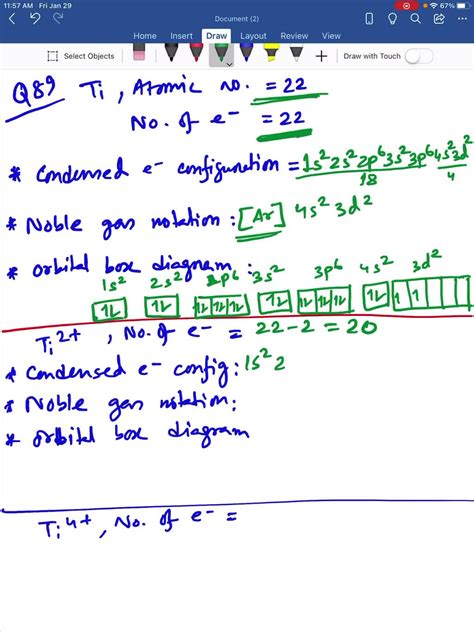 11:57 AM Fri Jan 29 67%
Document (2)
Home Insert Draw Layout Review View
Select Objects Draw with Touch
Q89 Ti, Atomic no. = 22
No. of e- = 22
* Condensed e- configuration = 1s² 2s² 2p⁶ 3s² 3p⁶ 4s² 3d²
18 4
* Noble gas notation : [Ar] 4s² 3d²
* orbital box diagram :
1s² 2s² 2p⁶ 3s² 3p⁶ 4s² 3d²
1L 1L 1L 1L 1L 1L 1L 1L 1L 1L 1 1
Ti²⁺, No. of e- = 22-2 = 20
* Condensed e- config: 1s² 2
* Noble gas notation:
* orbital box diagram
Ti⁴⁺, No. of e- =